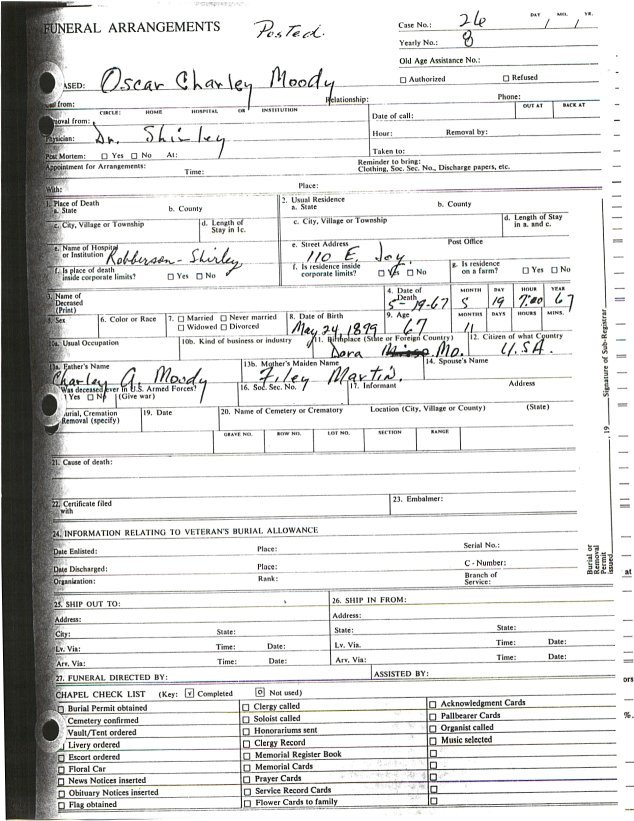 FUNERAL ARRANGEMENTS Posted. Case No.: 26 DAY MO. YR.
/ /
Yearly No.: 8
Old Age Assistance No.:
ASED: Oscar Charley Moody ☐ Authorized ☐ Refused
from: Relationship: Phone:
CIRCLE: HOME HOSPITAL OR INSTITUTION OUT AT BACK AT
oval from: Date of call:
ysician: Dr. Shirley Hour: Removal by:
Post Mortem: ☐ Yes ☐ No At: Taken to:
Appointment for Arrangements: Reminder to bring:
Time: Clothing, Soc. Sec. No., Discharge papers, etc.
With: Place:
1. Place of Death 2. Usual Residence
a. State b. County a. State b. County
c. City, Village or Township d. Length of Stay in 1c. c. City, Village or Township d. Length of Stay in a. and c.
e. Name of Hospital or Institution Robberson-Shirley e. Street Address 110 E. Joy. Post Office
f. Is place of death inside corporate limits? ☐ Yes ☐ No f. Is residence inside corporate limits? ☐ Yes ☐ No g. Is residence on a farm? ☐ Yes ☐ No
3. Name of Deceased (Print) 4. Date of Death 5-19-67 MONTH 5 DAY 19 HOUR 7:00 YEAR 67
5. Sex 6. Color or Race 7. ☐ Married ☐ Never married 8. Date of Birth 9. Age MONTHS DAYS HOURS MINS.
☐ Widowed ☐ Divorced May 24, 1899 67 11
10a. Usual Occupation 10b. Kind of business or industry 11. Birthplace (State or Foreign Country) 12. Citizen of what Country
Dora Mo. U.S.A.
13a. Father's Name 13b. Mother's Maiden Name 14. Spouse's Name
Charley A. Moody Filey Martin.
Was deceased ever in U.S. Armed Forces? 16. Soc. Sec. No. 17. Informant Address
☐ Yes ☐ No (Give war)
urial, Cremation Removal (specify) 19. Date 20. Name of Cemetery or Crematory Location (City, Village or County) (State)
GRAVE NO. ROW NO. LOT NO. SECTION RANGE
21. Cause of death:
22. Certificate filed with 23. Embalmer:
24. INFORMATION RELATING TO VETERAN'S BURIAL ALLOWANCE
Date Enlisted: Place: Serial No.:
Date Discharged: Place: C - Number:
Organization: Rank: Branch of Service:
25. SHIP OUT TO: 26. SHIP IN FROM:
Address: Address:
City: State: State:
Lv. Via: Time: Date: Lv. Via. Time: Date:
Arv. Via: Time: Date: Arv. Via: Time: Date:
27. FUNERAL DIRECTED BY: ASSISTED BY:
CHAPEL CHECK LIST (Key: ☑ Completed ☐ Not used)
☐ Burial Permit obtained ☐ Clergy called ☐ Acknowledgment Cards
Cemetery confirmed ☐ Soloist called ☐ Pallbearer Cards
Vault/Tent ordered ☐ Honorariums sent ☐ Organist called
Livery ordered ☐ Clergy Record ☐ Music selected
☐ Escort ordered ☐ Memorial Register Book ☐
☐ Floral Car ☐ Memorial Cards ☐
☐ News Notices inserted ☐ Prayer Cards ☐
☐ Obituary Notices inserted ☐ Service Record Cards ☐
☐ Flag obtained ☐ Flower Cards to family ☐
Signature of Sub-Registrar
19
Burial or Removal Permit issued
at
ors
%,